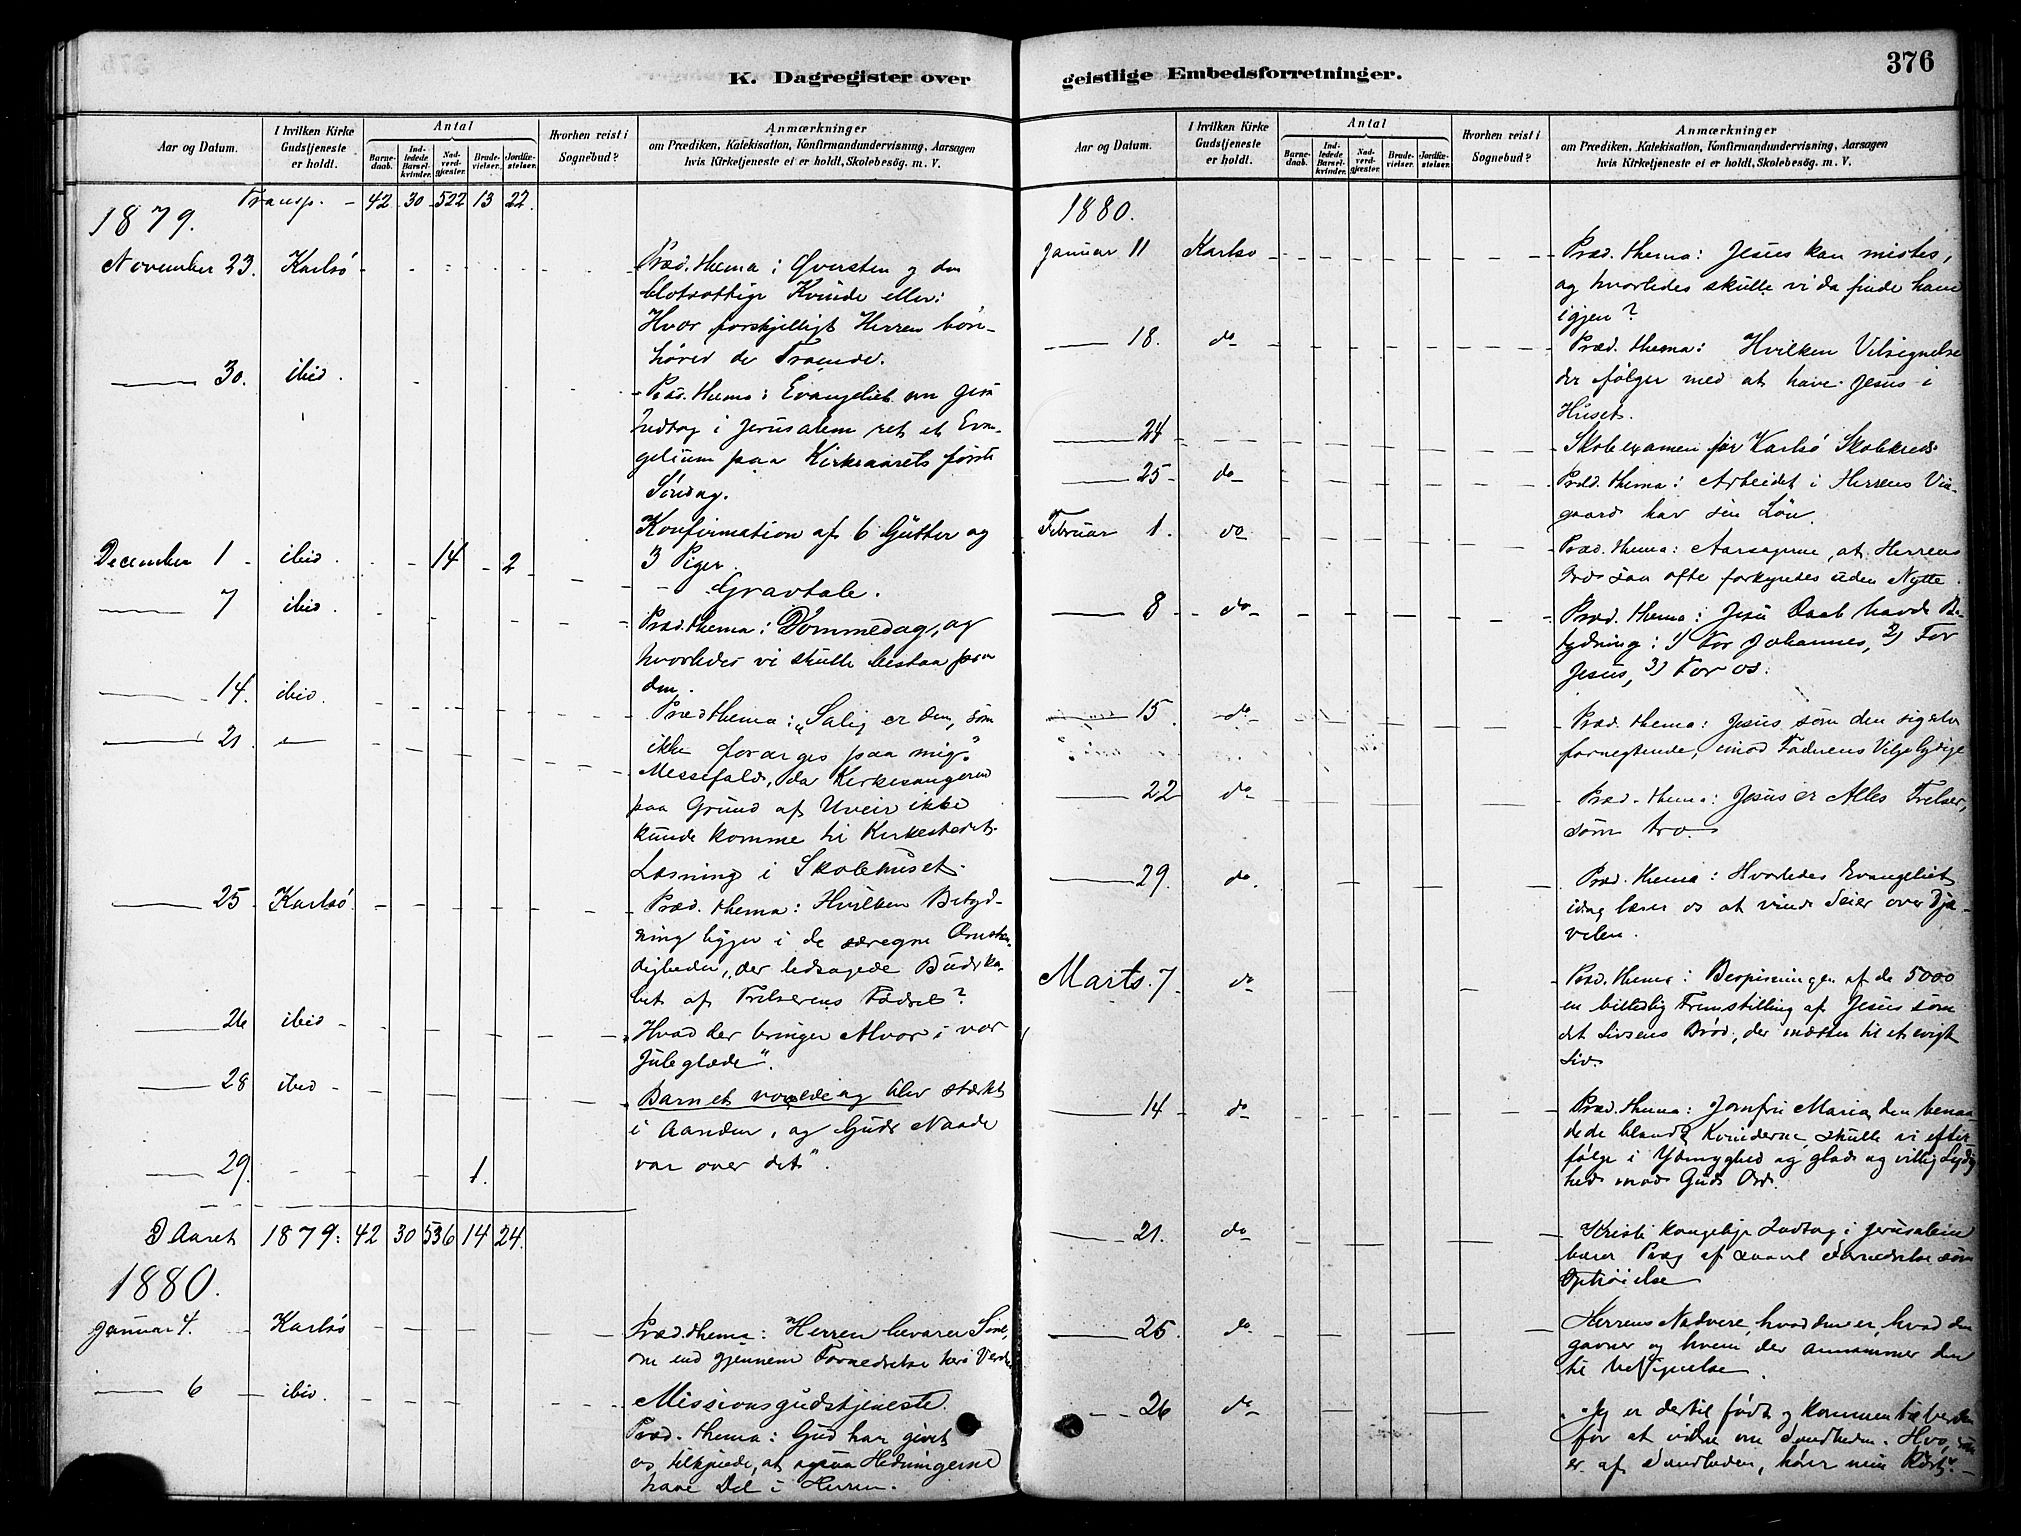 376
K. Dagregister over
geistlige Embedsforretninger.
Aar og Datum.
I hvilken Kirke
Gudstjeneste
er holdt.
Antal
Barne-
daab.
Ind-
ledede
Barsel-
kvinder.
Nad-
verd-
gjæster.
Brude-
vielser.
Jordfæ-
stelser.
Hvorhen reist i
Sognebud?
Anmærkninger
om Prædiken, Katekisation, Konfirmandundervisning, Aarsagen
hvis Kirketjeneste ei er holdt, Skolebesøg. m. V.
Transp. - 42 30 522 13 22.
1879.
November 23. Karlsö
Præd. thema: Øversten og den
blotsottige Kvinde eller:
Hvor forskjelligt Herren bön-
hörer de Troende.
30. ibid.
Præd. thema: Evangeliet om Jesu
Indtog i Jerusalem ret et Evan-
gelium paa Kirkeaarets förste
Söndag.
December 1 ibid. 14 2
Konfirmation af 6 Gutter og
3 Piger.
Gravtale.
7 ibid.
Præd. thema: Dommedag, og
hvorledes vi skulle bestaa paa
den.
14. ibid.
Præd thema: "Salig er den, som
ikke forarges paa mig".
21.
Messefald, da Kirkesangeren
paa Grund af Uveir ikke
kunde komme til Kirkestedet.
Læsning i Skolehuset.
25 Karlsö.
Præd. thema: Hvilken Betyd-
ning ligger i de særegne Omstæn-
digheder, der ledsagede Budska-
bet af Frelserens Fødsel?
26 ibid
Hvad der bringer Alvor i vor
Juleglæde".
28 ibid
Barnet voxede og blev stærkt
i Aanden, og Guds Naade
var over det".
29. 1.
I Aaret 1879: 42 30 536 14 24.
1880.
Januar 4. Karlsö
Præd. thema: Herren bevarer Sine,
om end gjennem Fornedrelse her i Verden
6 ibid.
Missionsgudstjeneste.
Præd. thema: Gud har givet
os tilkjende, at ogsaa Hedningerne
have Del i Herren.
Aar og Datum.
I hvilken Kirke
Gudstjeneste
er holdt.
Antal
Barne-
daab.
Ind-
ledede
Barsel-
kvinder.
Nad-
verd-
gjæster.
Brude-
vielser.
Jordfæ-
stelser.
Hvorhen reist i
Sognebud?
Anmærkninger
om Prædiken, Katekisation, Konfirmandundervisning, Aarsagen
hvis Kirketjeneste ei er holdt, Skolebesøg. m. V.
1880.
Januar 11 Karlsö
Præd. thema: Jesus kan mistes,
og hvorledes skulle vi da finde ham
igjen?
18. do
Præd. thema: Hvilken Velsignelse
der følger med at have Jesus i
Huset.
24
Skoleexamen for Karlsö Skolekreds.
25 do
Præd. thema: Arbeidet i Herrens Vin-
gaard har sin Lön.
Februar 1. do
Præd. thema: Aarsagerne, at Herrens
Ord saa ofte forkyndes uden Nytte.
8 do
Præd. thema: Jesu Daab havde Be-
tydning: 1) For Johannes, 2) For
Jesus, 3) For os.
15. do
Præd. thema: Jesus som den sig selv
fornegtende, imod Faderens Vilje lydige
22 do
Præd. thema: Jesus er Alles Frelser,
som tro.
29. do.
Præd. thema: Hvorledes Evangeliet
idag lærer os at vinde Seier over Djæ-
velen.
Marts. 7 do
Præd. thema: Bespisningen af de 5000
en billedlig Fremstilling af Jesus som
det Livsens Brød, der mætter til et evigt
Liv.
14 do
Præd. thema: Jomfru Maria, den benaa-
dede blandt Kvinderne, skulle vi efter-
følge i Ydmyghed og glad og villig Lydig
hed mod Guds Ord.
21. do
Kristi kongelige Indtog i Jerusalem
bærer Præg af saavel Fornedrelse som
Ophöielse
25. do
Herrens Nadvere, hvad den er, hvad den
gavner og hvem der annammer den
til Velsignelse.
26 do
"Jeg er dertil født og kommen til Verden
for at vidne om Sandheden. Hvo, som
er af Sandheden, hörer min Röst".